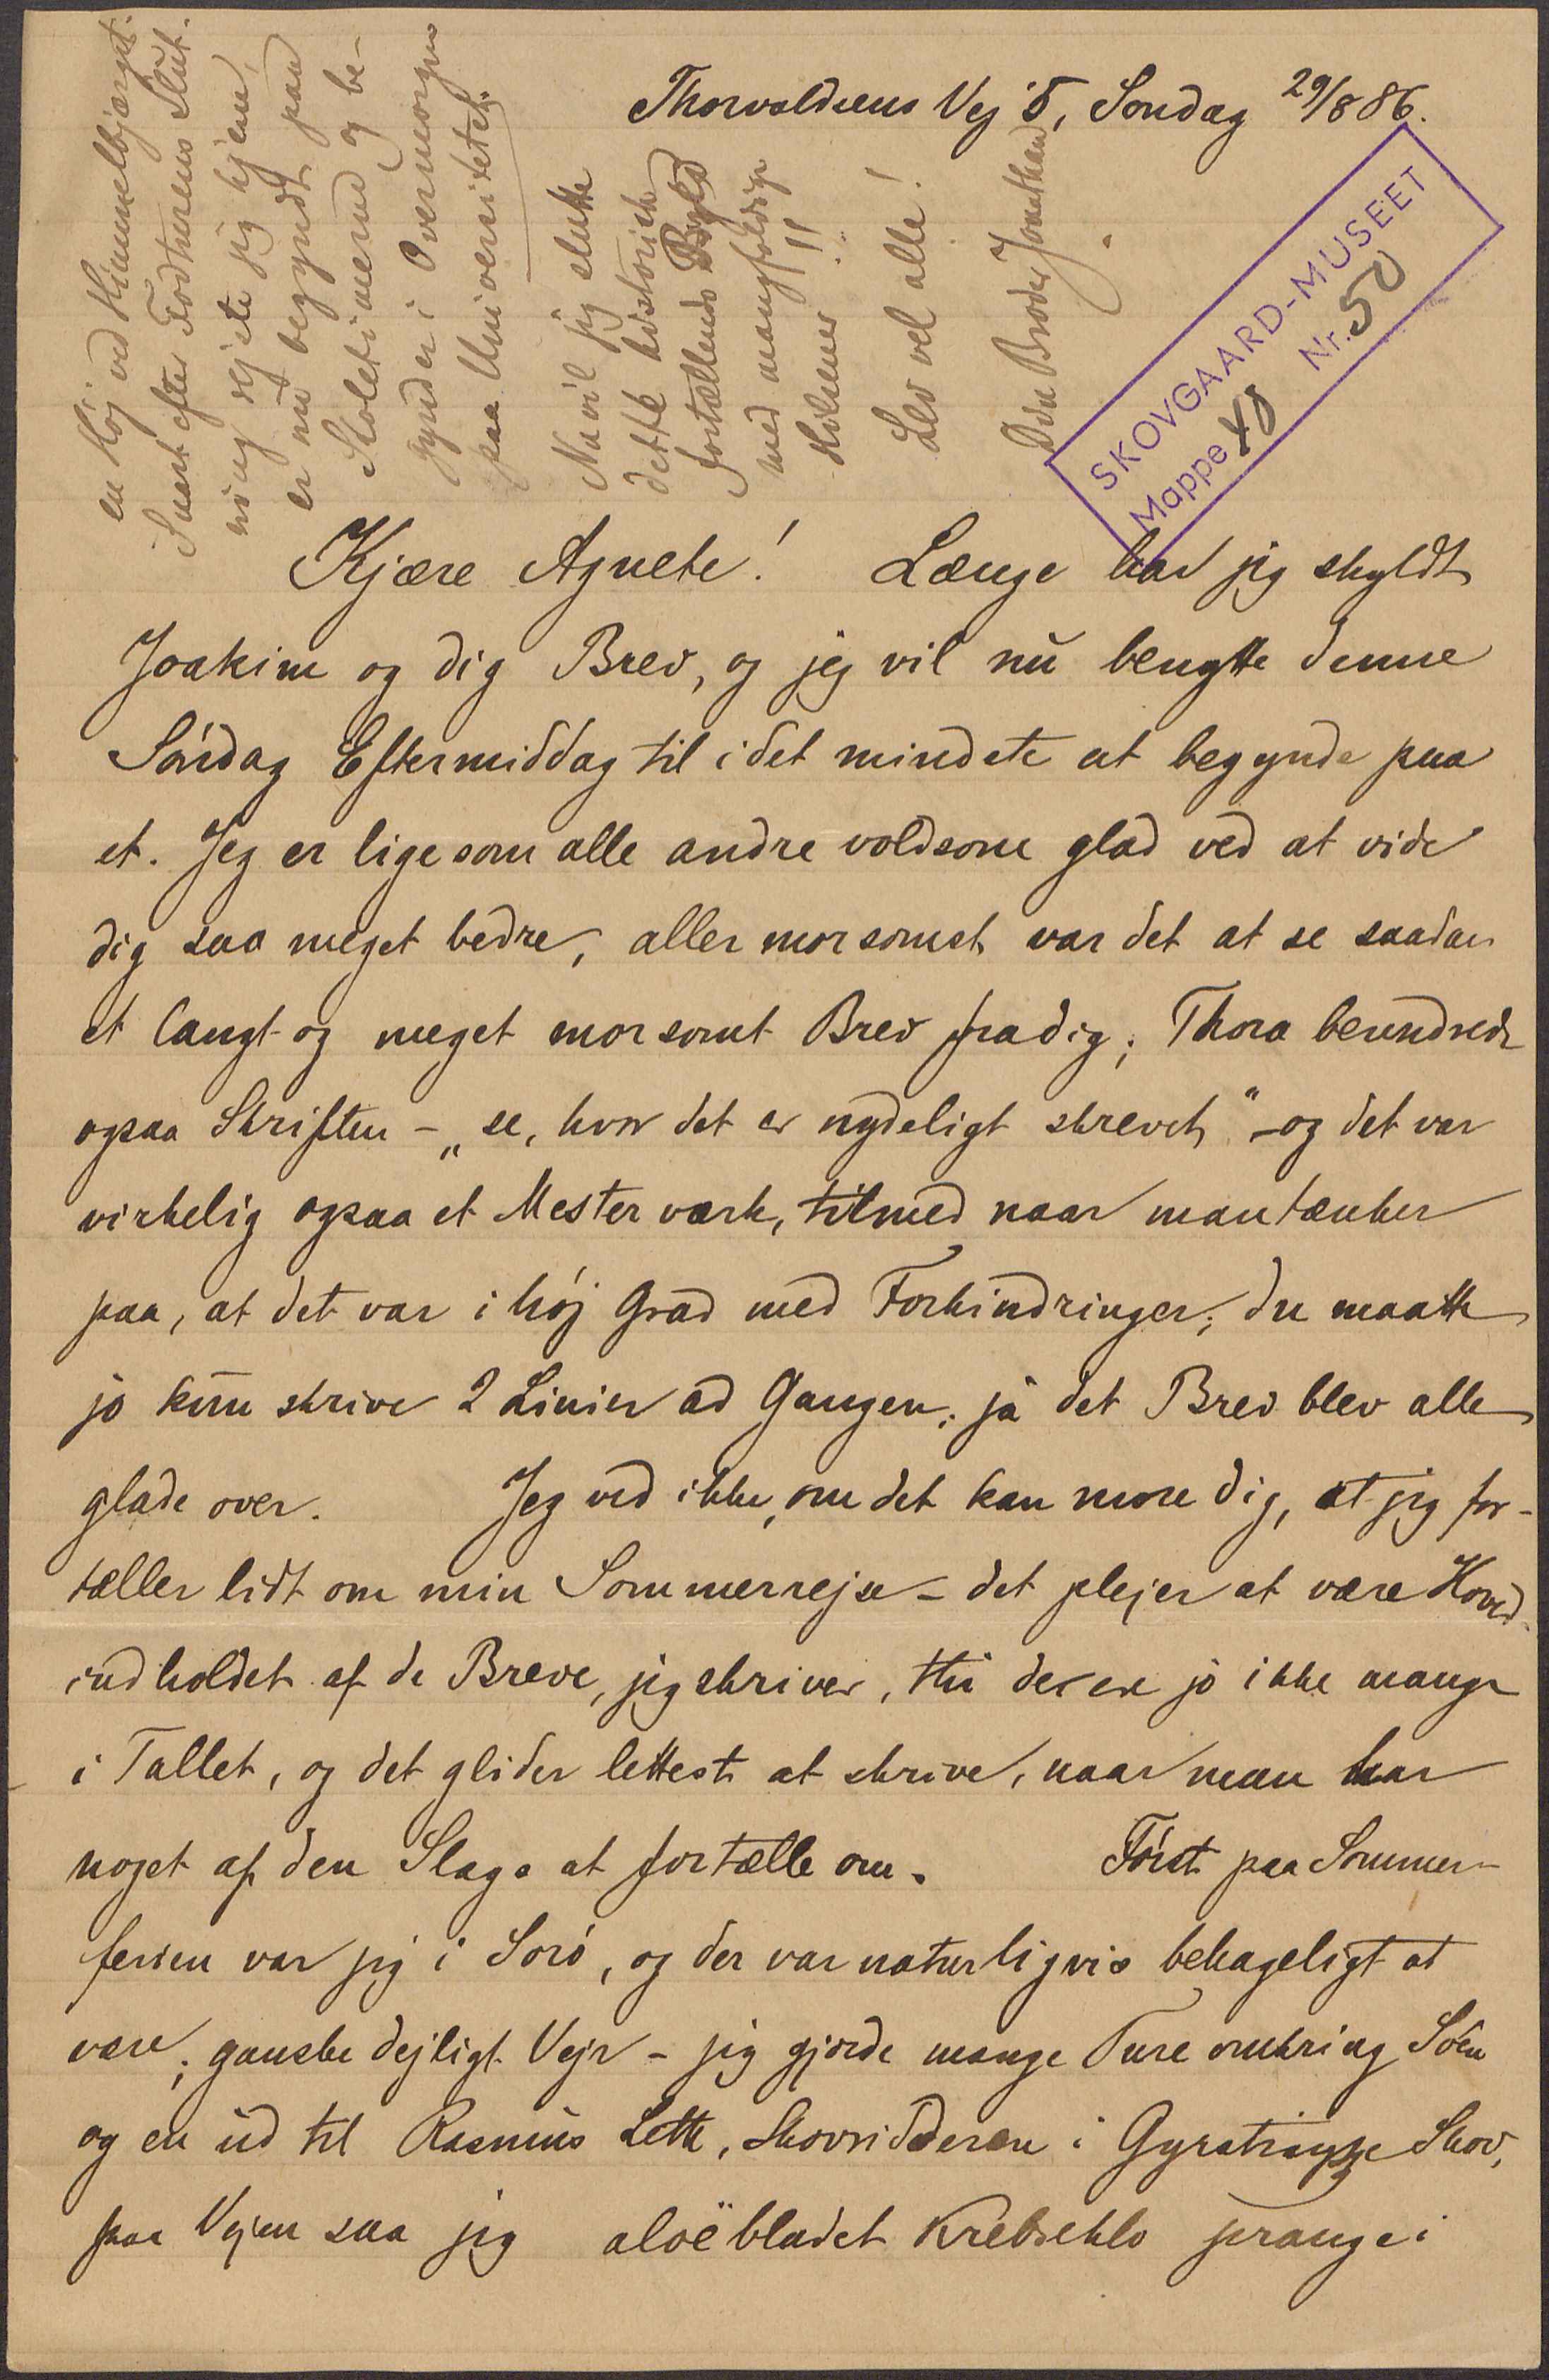 Thorvaldsens Vej 5, Søndag 29/8 86.
SKOVGAARD-MUSEET
Mappe 48 Nr. 50
Kjære Agnete! Længe har jeg skyldt
Joakim og dig Brev, og jeg vil nu benytte denne
Søndag Eftermiddag til i det mindste at begynde paa
et. Jeg er ligesom alle andre voldsom glad ved at vide
dig saa meget bedre, aller morsomst var det at se saadan
et langt og meget morsomt Brev fra dig; Thora beundrede
ogsaa Skriften – „se, hvor det er nydeligt skrevet“ – og det var
virkelig ogsaa et Mesterværk, tilmed naar man tænker
paa, at det var i høj Grad med Forhindringer; du maatte
jo kun skrive 2 Linier ad Gangen; ja det Brev blev alle
glade over. Jeg ved ikke, om det kan more dig, at jeg for-
tæller lidt om min Sommerrejse – det plejer at være Hoved-
indholdet af de Breve, jeg skriver, thi de ere jo ikke mange
i Tallet, og det glider lettest at skrive, naar man har
noget af den Slags at fortælle om. Først paa Sommer-
ferien var jeg i Sorø, og der var naturligvis behageligt at
være; ganske dejligt Vejr – jeg gjorde mange Ture omkring Søen
og en ud til Rasmus Lette, Skovridderen i Gyrstinge Skov,
paa Vejen saa jeg aloëbladet Krebseklo prange i
en Høj ved Himmelbjærget.
Snart efter Fodturens Slut-
ning rejste jeg hjem,
er nu begyndt paa
Skoletimerne og be-
gynder i Overmorgen
paa Universitetet.
Nu vil jeg slutte
dette historisk
fortællende
med mangfoldige
Hilsener!!
Lev vel alle!
Din Broder Jonathan.